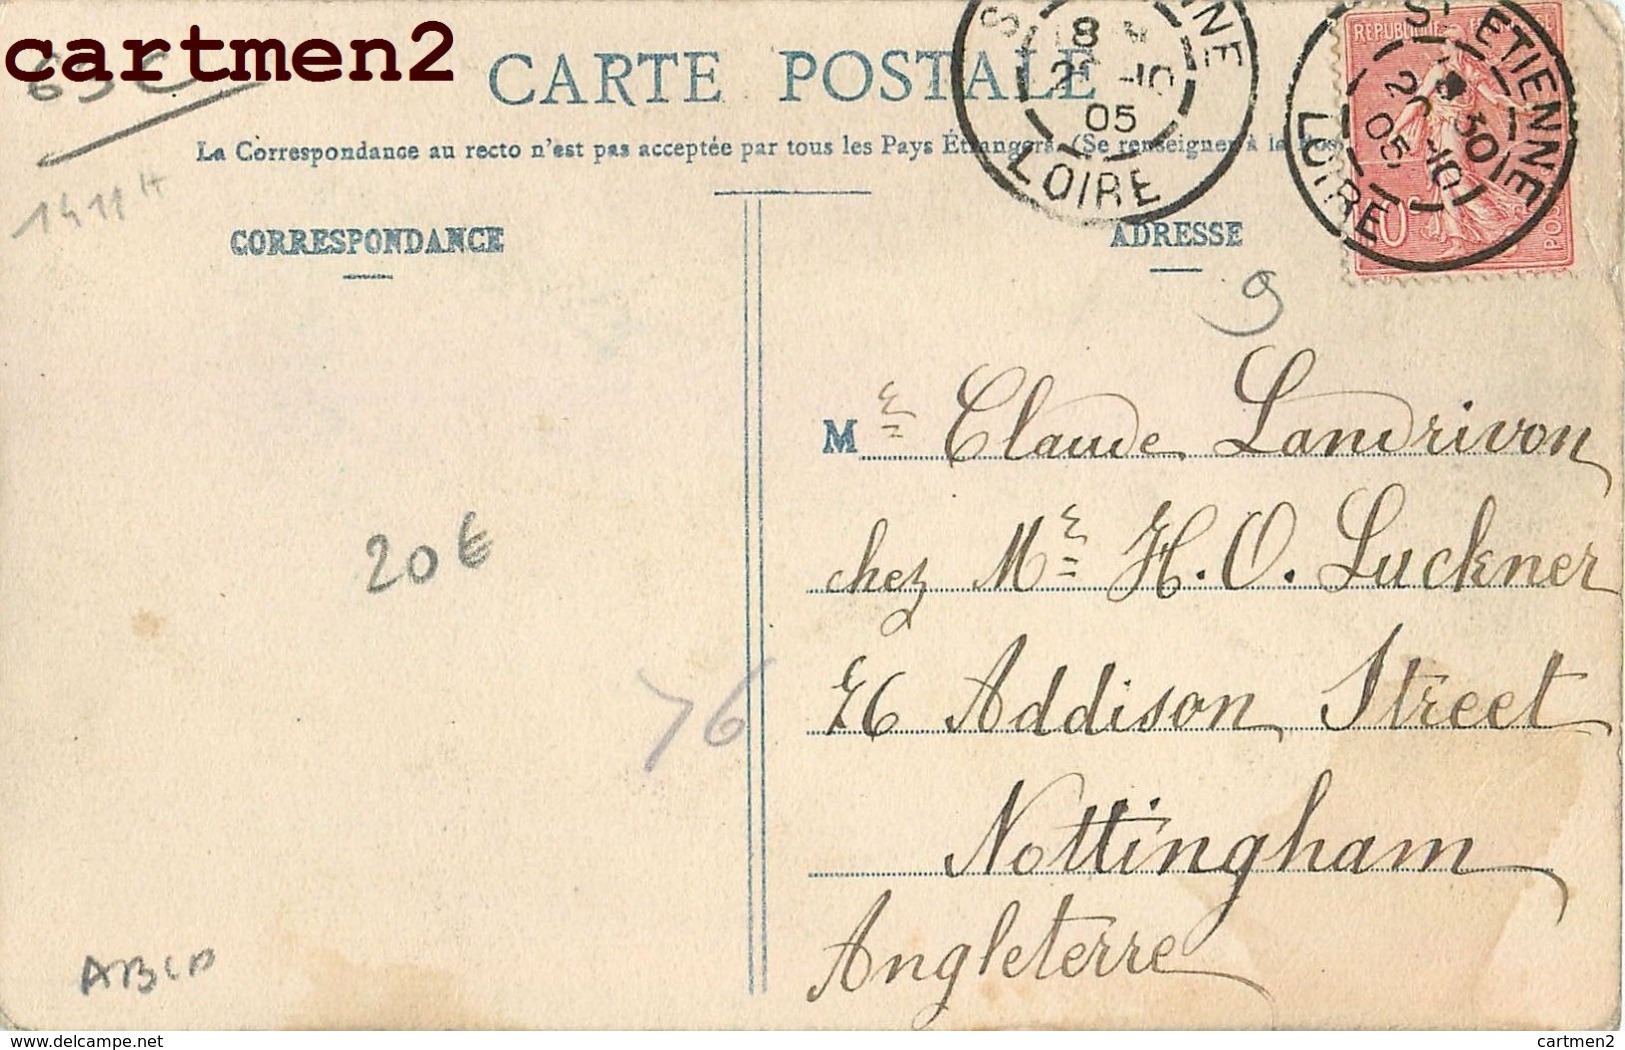 cartmen2
CARTE POSTALE
La Correspondance au recto n'est pas acceptée par tous les Pays Étrangers. (Se renseigner à la Pos
1411
CORRESPONDANCE
ADRESSE
8
-10
05
LOIRE
ST ETIENNE
30
-10
05
LOIRE
REPUBLIQUE
9
Me Claude Landrivon
chez Me H. O. Luckner
76 Addison Street
Nottingham
Angleterre
20€
76
www.delcampe.net
cartmen2